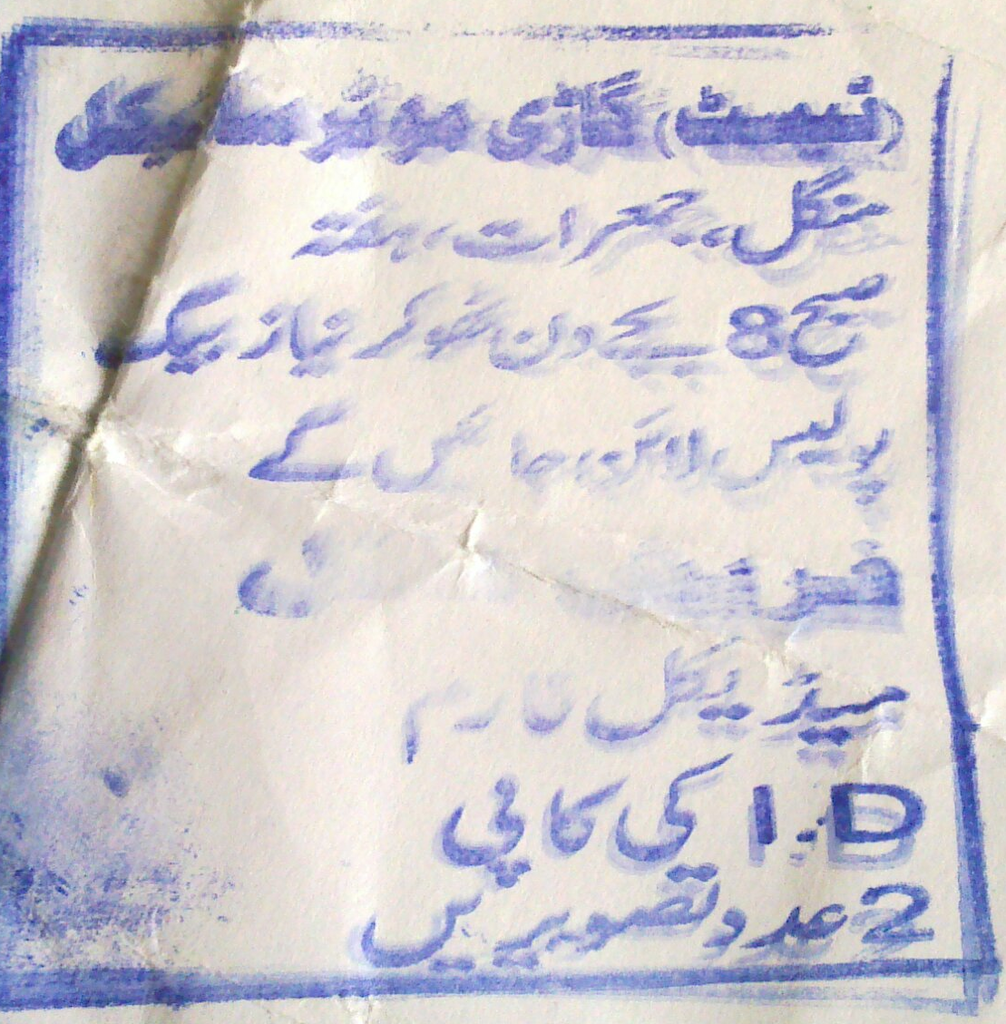 (ٹیسٹ) گاڑی موٹر سائیکل
منگل، جمعرات، ہفتہ
صبح 8 بجے دن ٹھوکر نیاز بیگ
پولیس لائن، جائیں گے
میڈیکل فارم
I.D کی کاپی
2 عدد تصویریں